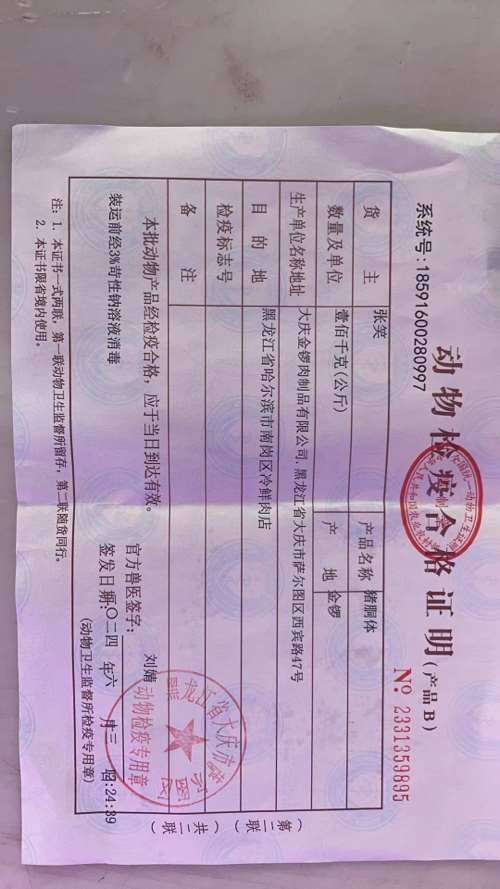 动物检疫合格证明(产品B)
系统号:18591600280997
№ 2331359895
货主 张笑 产品名称 猪胴体
数量及单位 壹佰千克(公斤) 产地 金锣
生产单位名称地址 大庆金锣肉制品有限公司.黑龙江省大庆市萨尔图区西宾路47号
目的地 黑龙江省哈尔滨市南岗区冷鲜肉店
检疫标志号
备注
本批动物产品经检疫合格,应于当日到达有效。
装运前经3%苛性钠溶液消毒
官方兽医签字: 刘婧
签发日期:〇二四 年六 月三 :24:39
(动物卫生监督所检疫专用章)
龙江省大庆市
动物检疫专用章
注:1、本证书一式两联,第一联动物卫生监督所留存,第二联随货同行。
2、本证书限省境内使用。
(第二联)
(共二联)